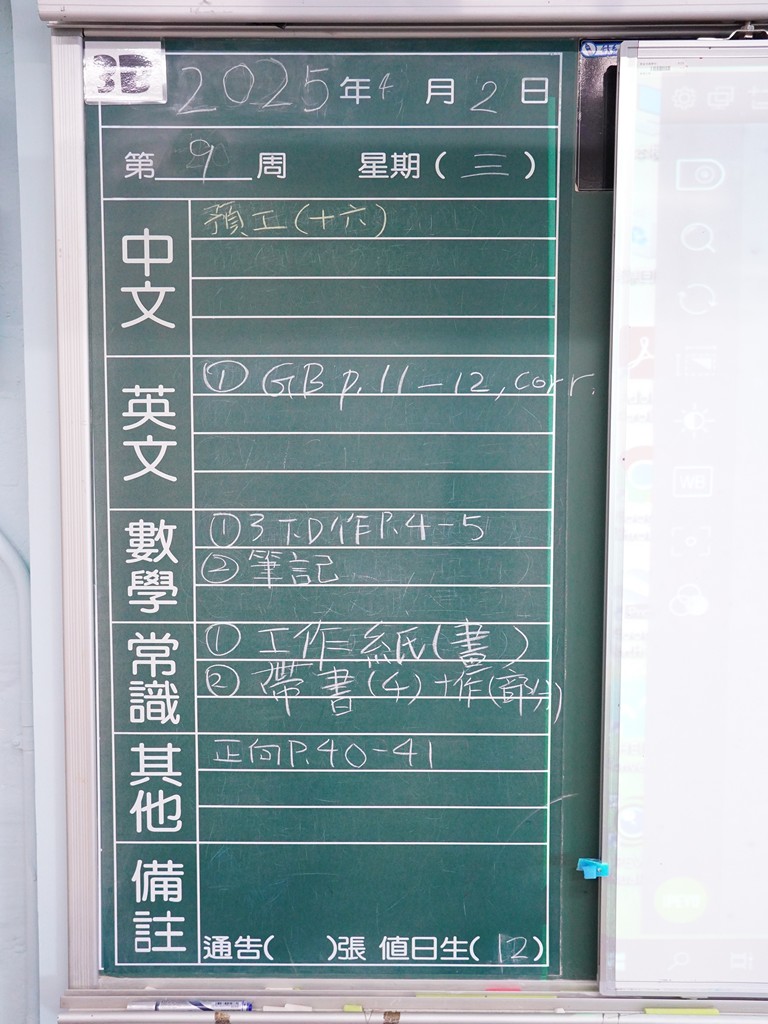 3D
2025年4月2日
第9周 星期(三)
中文
預工(十六)
英文
① GB p.11-12, corr.
數學
①3下D作P.4-5
②筆記
常識
① 工作紙(畫)
② 帶書(4)+作(部分)
其他
正向P.40-41
備註
通告( )張 值日生(12)
WB